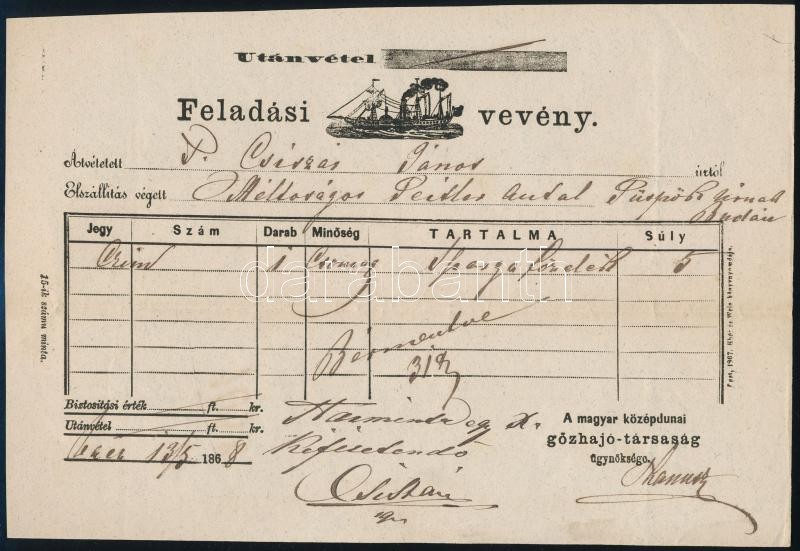 Utánvétel
Feladási vevény.
Átvétetett P. Csiszár János úrtól
Elszállítás végett Méltóságos Peitler Antal Püspök úrnak
Budán
Jegy Szám Darab Minőség TARTALMA Súly
Czim 1 Csomag Spárga főzelék 5
Bérmentve
31 kr
Biztositási érték ft. kr.
Utánvétel ft. kr.
13/5 1868
Harmincz egy kr.
kifizetendő
A magyar középdunai
gőzhajó-társaság
ügynöksége.
15-ik számu minta.
Pest, 1867. Khór és Wein könyvnyomdája.
darabanth